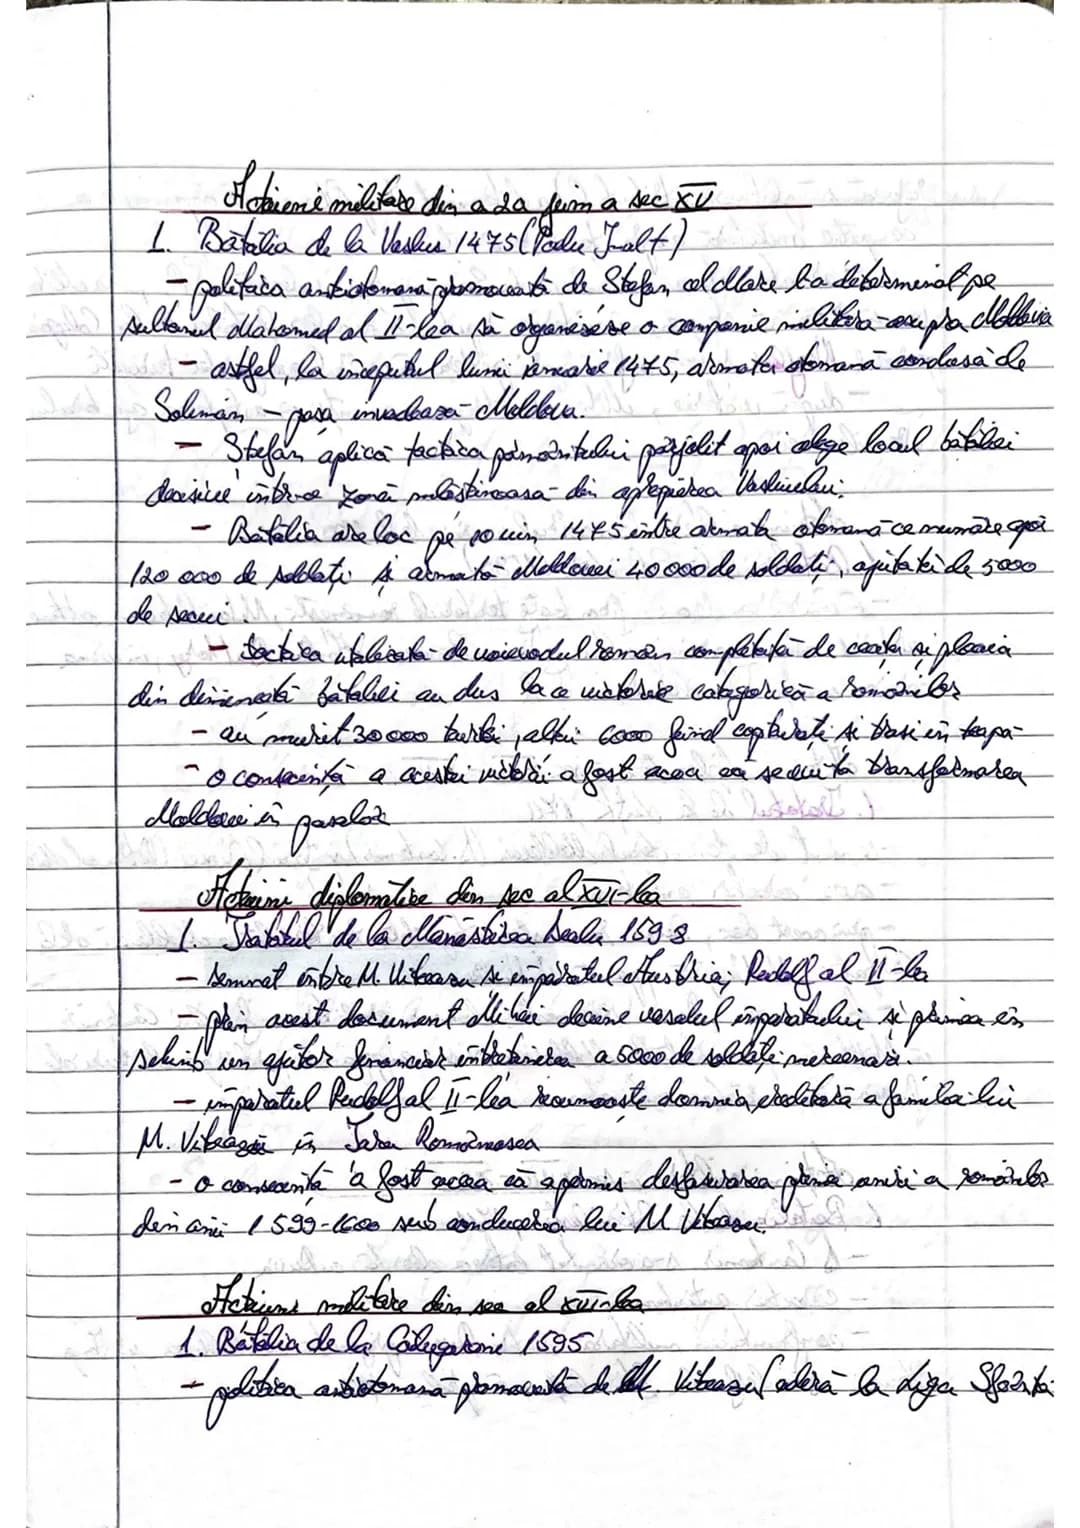 Acțiuni militare din a 2a jum a sec XV
1. Bătălia de la Vaslui 1475 (Podu Inalt)
- politica antiotomană promovată de Stefan cel Mare l-a determinat pe
sultanul Mahomed al II-lea să organizeze o campanie militara asupra Moldova
- astfel, la inceputul lunii ianuarie 1475, armata otomană condusă de
Soliman - pașa invadează Moldova.
- Ștefan aplică tactica pământului pârjolit apoi alege locul bătăliei
decisive într-o zonă mlăstinoasa din apropierea Vasluiului.
- Bătălia are loc pe 10 ian 1475 intre armata otomană ce număra
120 000 de soldați și armata Moldovei 40 000 de soldați, ajutati de 5000
de secui.
- tactica utilizată de voievodul român completată de ceata si ploaia
din dimineata bătăliei au dus la o victorie categorică a românilor
- au murit 30 000 turci, alti 6000 fiind capturati si trasi in teapă
- o consecință a acestei victorii a fost aceea că se evita transformarea
Moldovei in pasalac
Actiuni diplomatice din sec al XVI-lea
1. Tratatul de la Mănăstirea Dealu 1598
- semnat intre M. Viteazu si împăratul Austriei Rudolf al II-lea
- prin acest document Mihai devine vasalul împăratului si primea in
schimb un ajutor financiar întreținerea a 5000 de soldați mercenari.
- imparatul Rudolf al II-lea recunoaste domnia ereditară a familiei lui
M. Viteazu in Tara Românească
- o consecintă a fost aceea că a permis desfasurarea primei uniri a românilor
din anii 1599-1600 sub conducerea lui M Viteazu.
Actiuni militare din sec al XVI-lea
1. Bătălia de la Călugareni 1595
- politica antiotomană promovată de M. Viteazu (aderă la Liga Sfântă